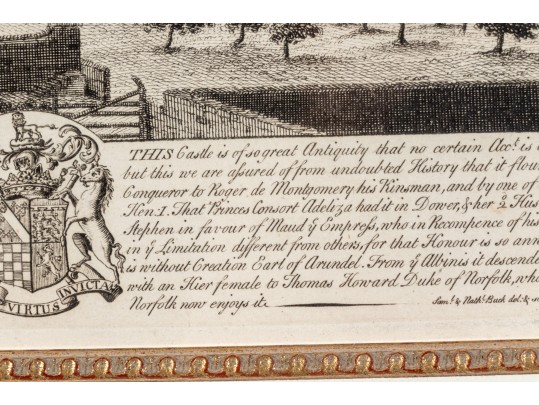 THIS Castle is of so great Antiquity that no certain Acc.t is
but this we are assured of from undoubted History that it flou
Conqueror to Roger de Montgomery his Kinsman, and by one of
Hen: I. That Princes Consort Adeliza had it in Dower, & her 2 Hus
Stephen in favour of Maud ye Empress, who in Recompence of his
in ye Limitation different from others, for that Honour is so ann
is without Creation Earl of Arundel. From ye Albinis it descende
with an Hier female to Thomas Howard Duke of Norfolk, who
Norfolk now enjoys it.
Sam.l & Nath.l Buck del: & sc
VIRTUS INVICTA